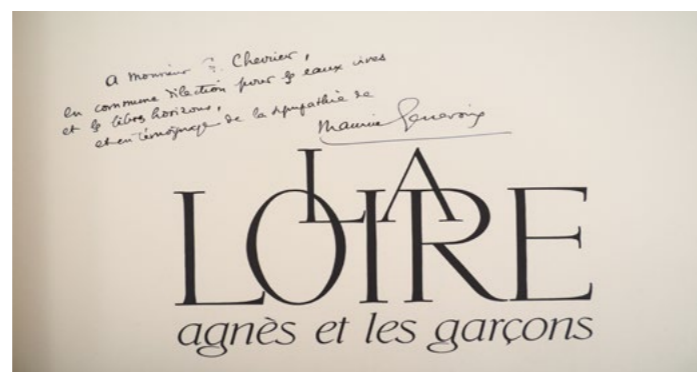 A Monsieur Chevrier,
en commune dilection pour les eaux vives
et les libres horizons,
et en témoignage de la sympathie de
Maurice Genevoix
LA
LOIRE
agnès et les garçons